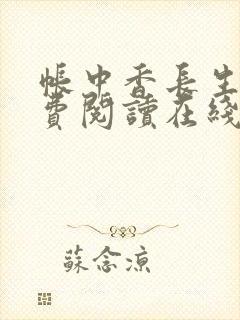 帳中香長生
費閱讀在綫
蘇念涼